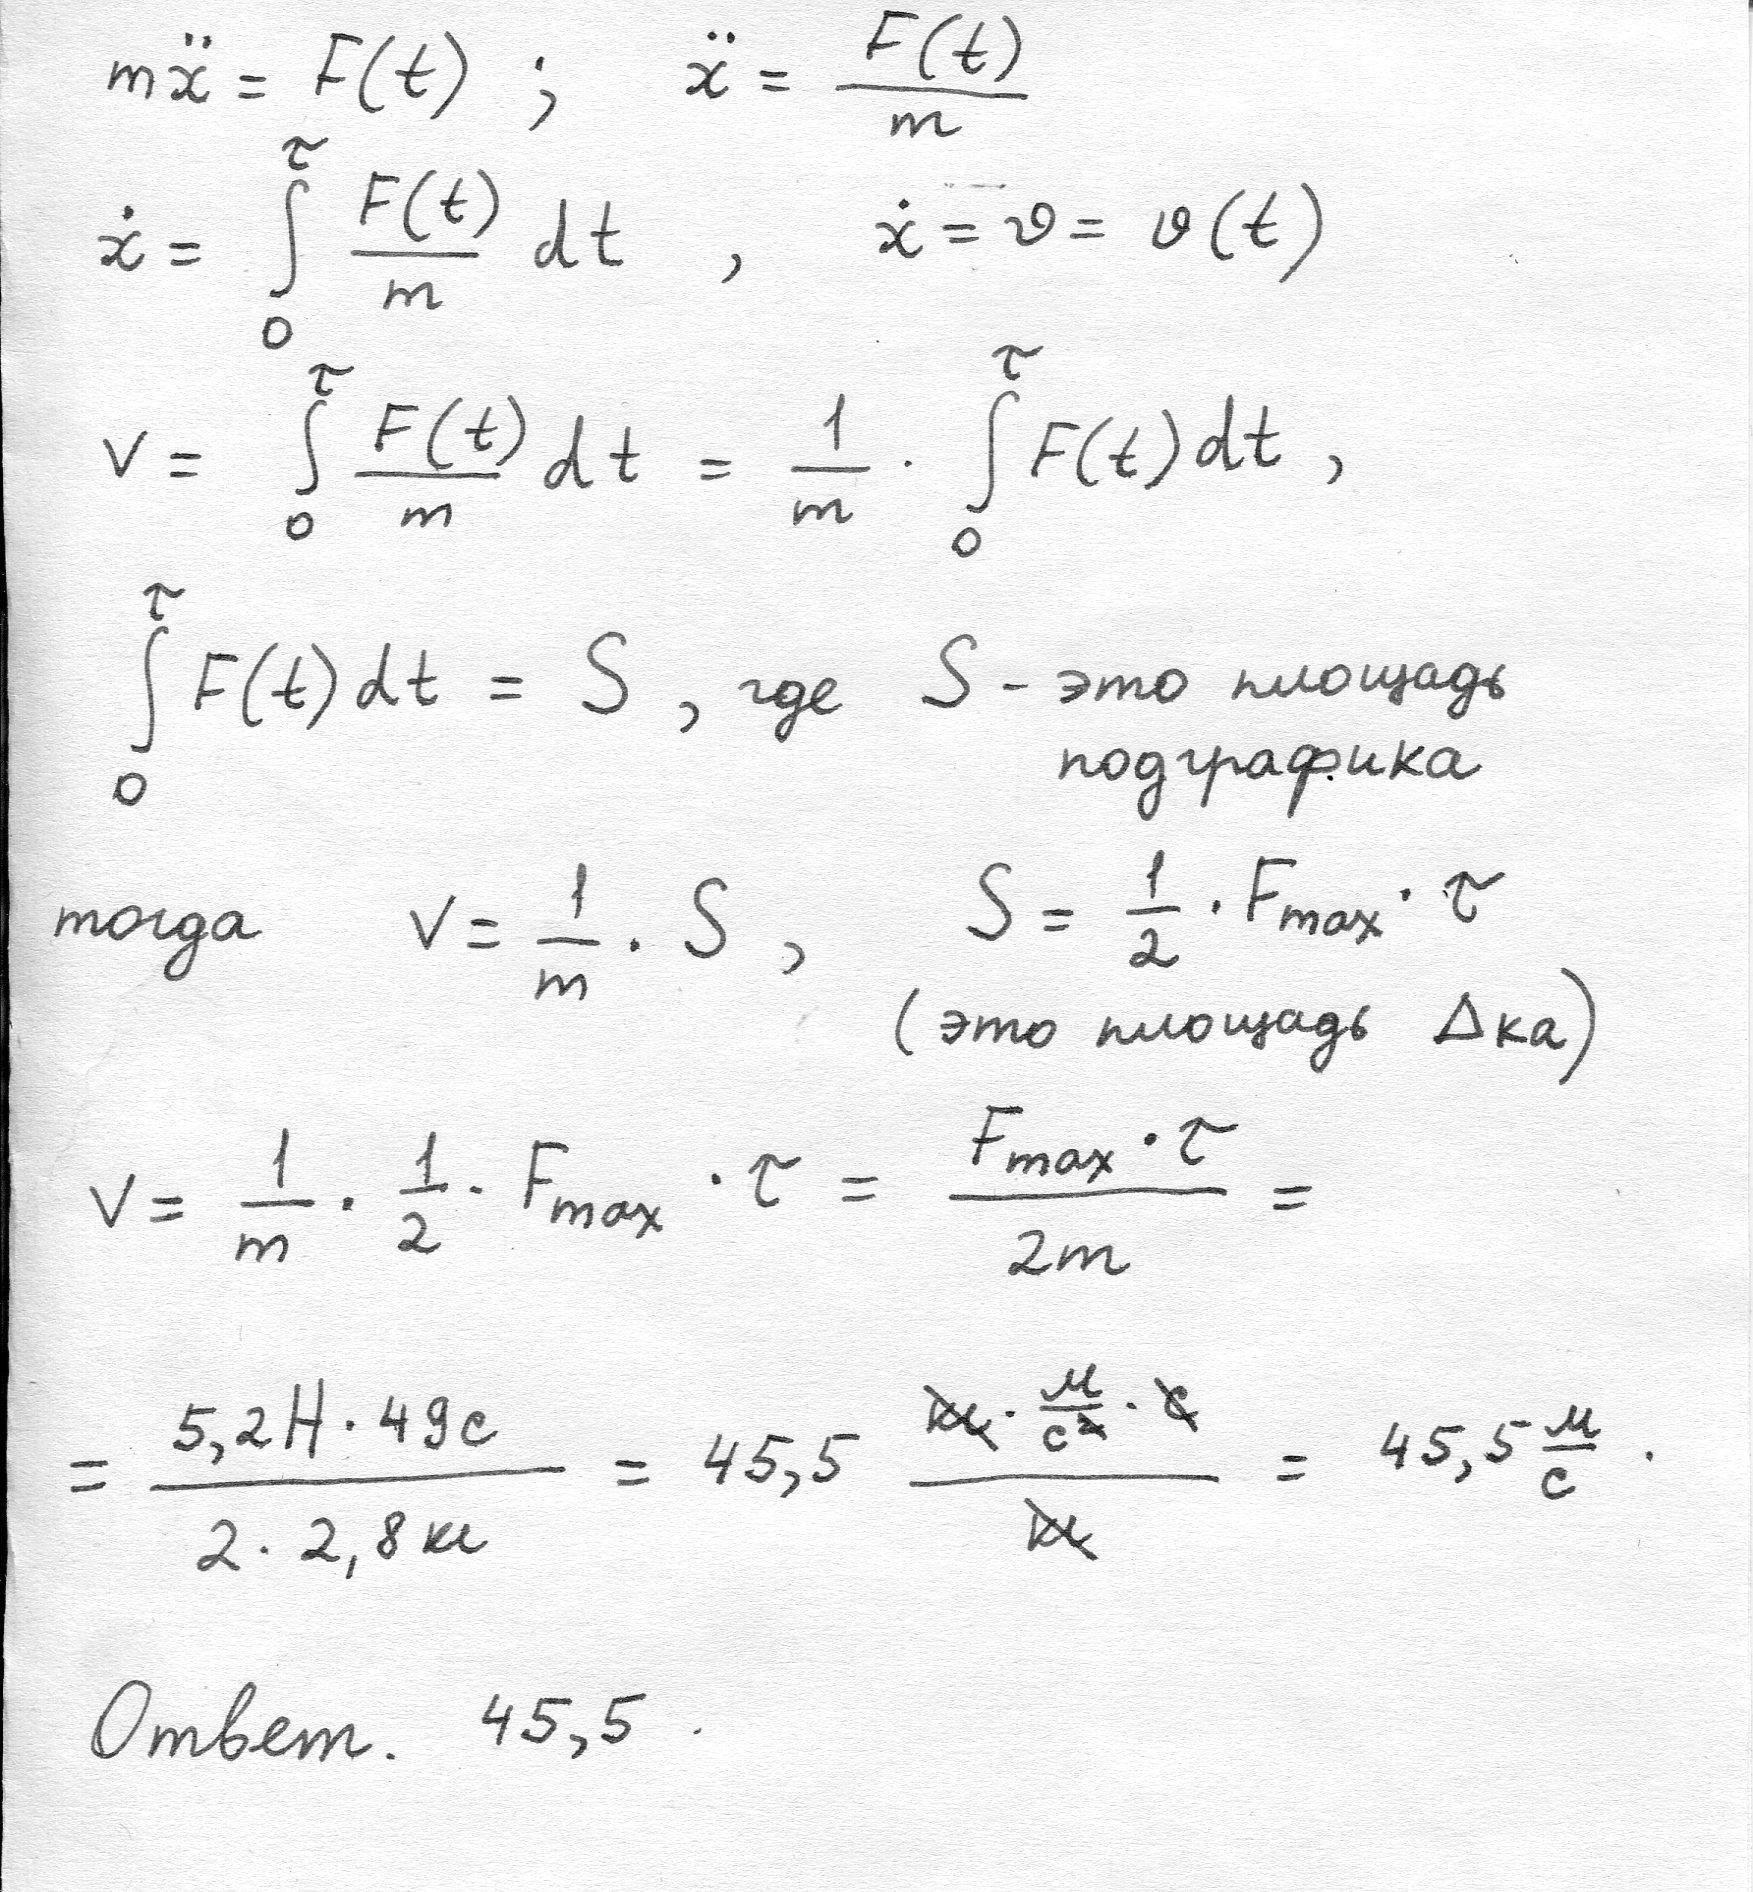 mẍ = F(t) ; ẍ = F(t)/m
ẋ = ∫₀^τ F(t)/m dt , ẋ = v = v(t)
v = ∫₀^τ F(t)/m dt = 1/m · ∫₀^τ F(t)dt ,
∫₀^τ F(t)dt = S , где S - это площадь
подграфика
тогда v = 1/m · S , S = 1/2 · Fmax · τ
(это площадь Δка)
v = 1/m · 1/2 · Fmax · τ = Fmax · τ / 2m =
= 5,2Н · 49с / 2 · 2,8кг = 45,5 кг · м/с² · с / кг = 45,5 м/с .
Ответ. 45,5 .